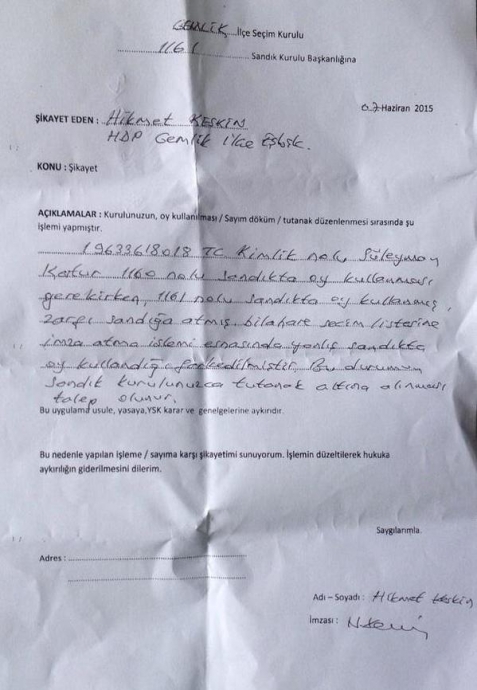 GEMLİK İlçe Seçim Kurulu
1161 Sandık Kurulu Başkanlığına
07 Haziran 2015
ŞİKAYET EDEN : Hikmet KESKİN
HDP Gemlik İlçe Eşbşk.
KONU : Şikayet
AÇIKLAMALAR : Kurulunuzun, oy kullanılması / Sayım döküm / tutanak düzenlenmesi sırasında şu
işlemi yapmıştır.
19633618018 TC Kimlik nolu Süleyman
1160 nolu sandıkta oy kullanması
gerekirken, 1161 nolu sandıkta oy kullanmış,
zarfı sandığa atmış, bilahare seçim listesine
imza atma işlemi esnasında yanlış sandıkta
oy kullandığı farkedilmiştir. Bu durumun
Sandık kurulunuzca tutanak altına alınması
talep olunur.
Bu uygulama usule, yasaya,YSK karar ve genelgelerine aykırıdır.
Bu nedenle yapılan işleme / sayıma karşı şikayetimi sunuyorum. İşlemin düzeltilerek hukuka
aykırılığın giderilmesini dilerim.
Saygılarımla.
Adres :
Adı – Soyadı : Hikmet Keskin
İmzası :